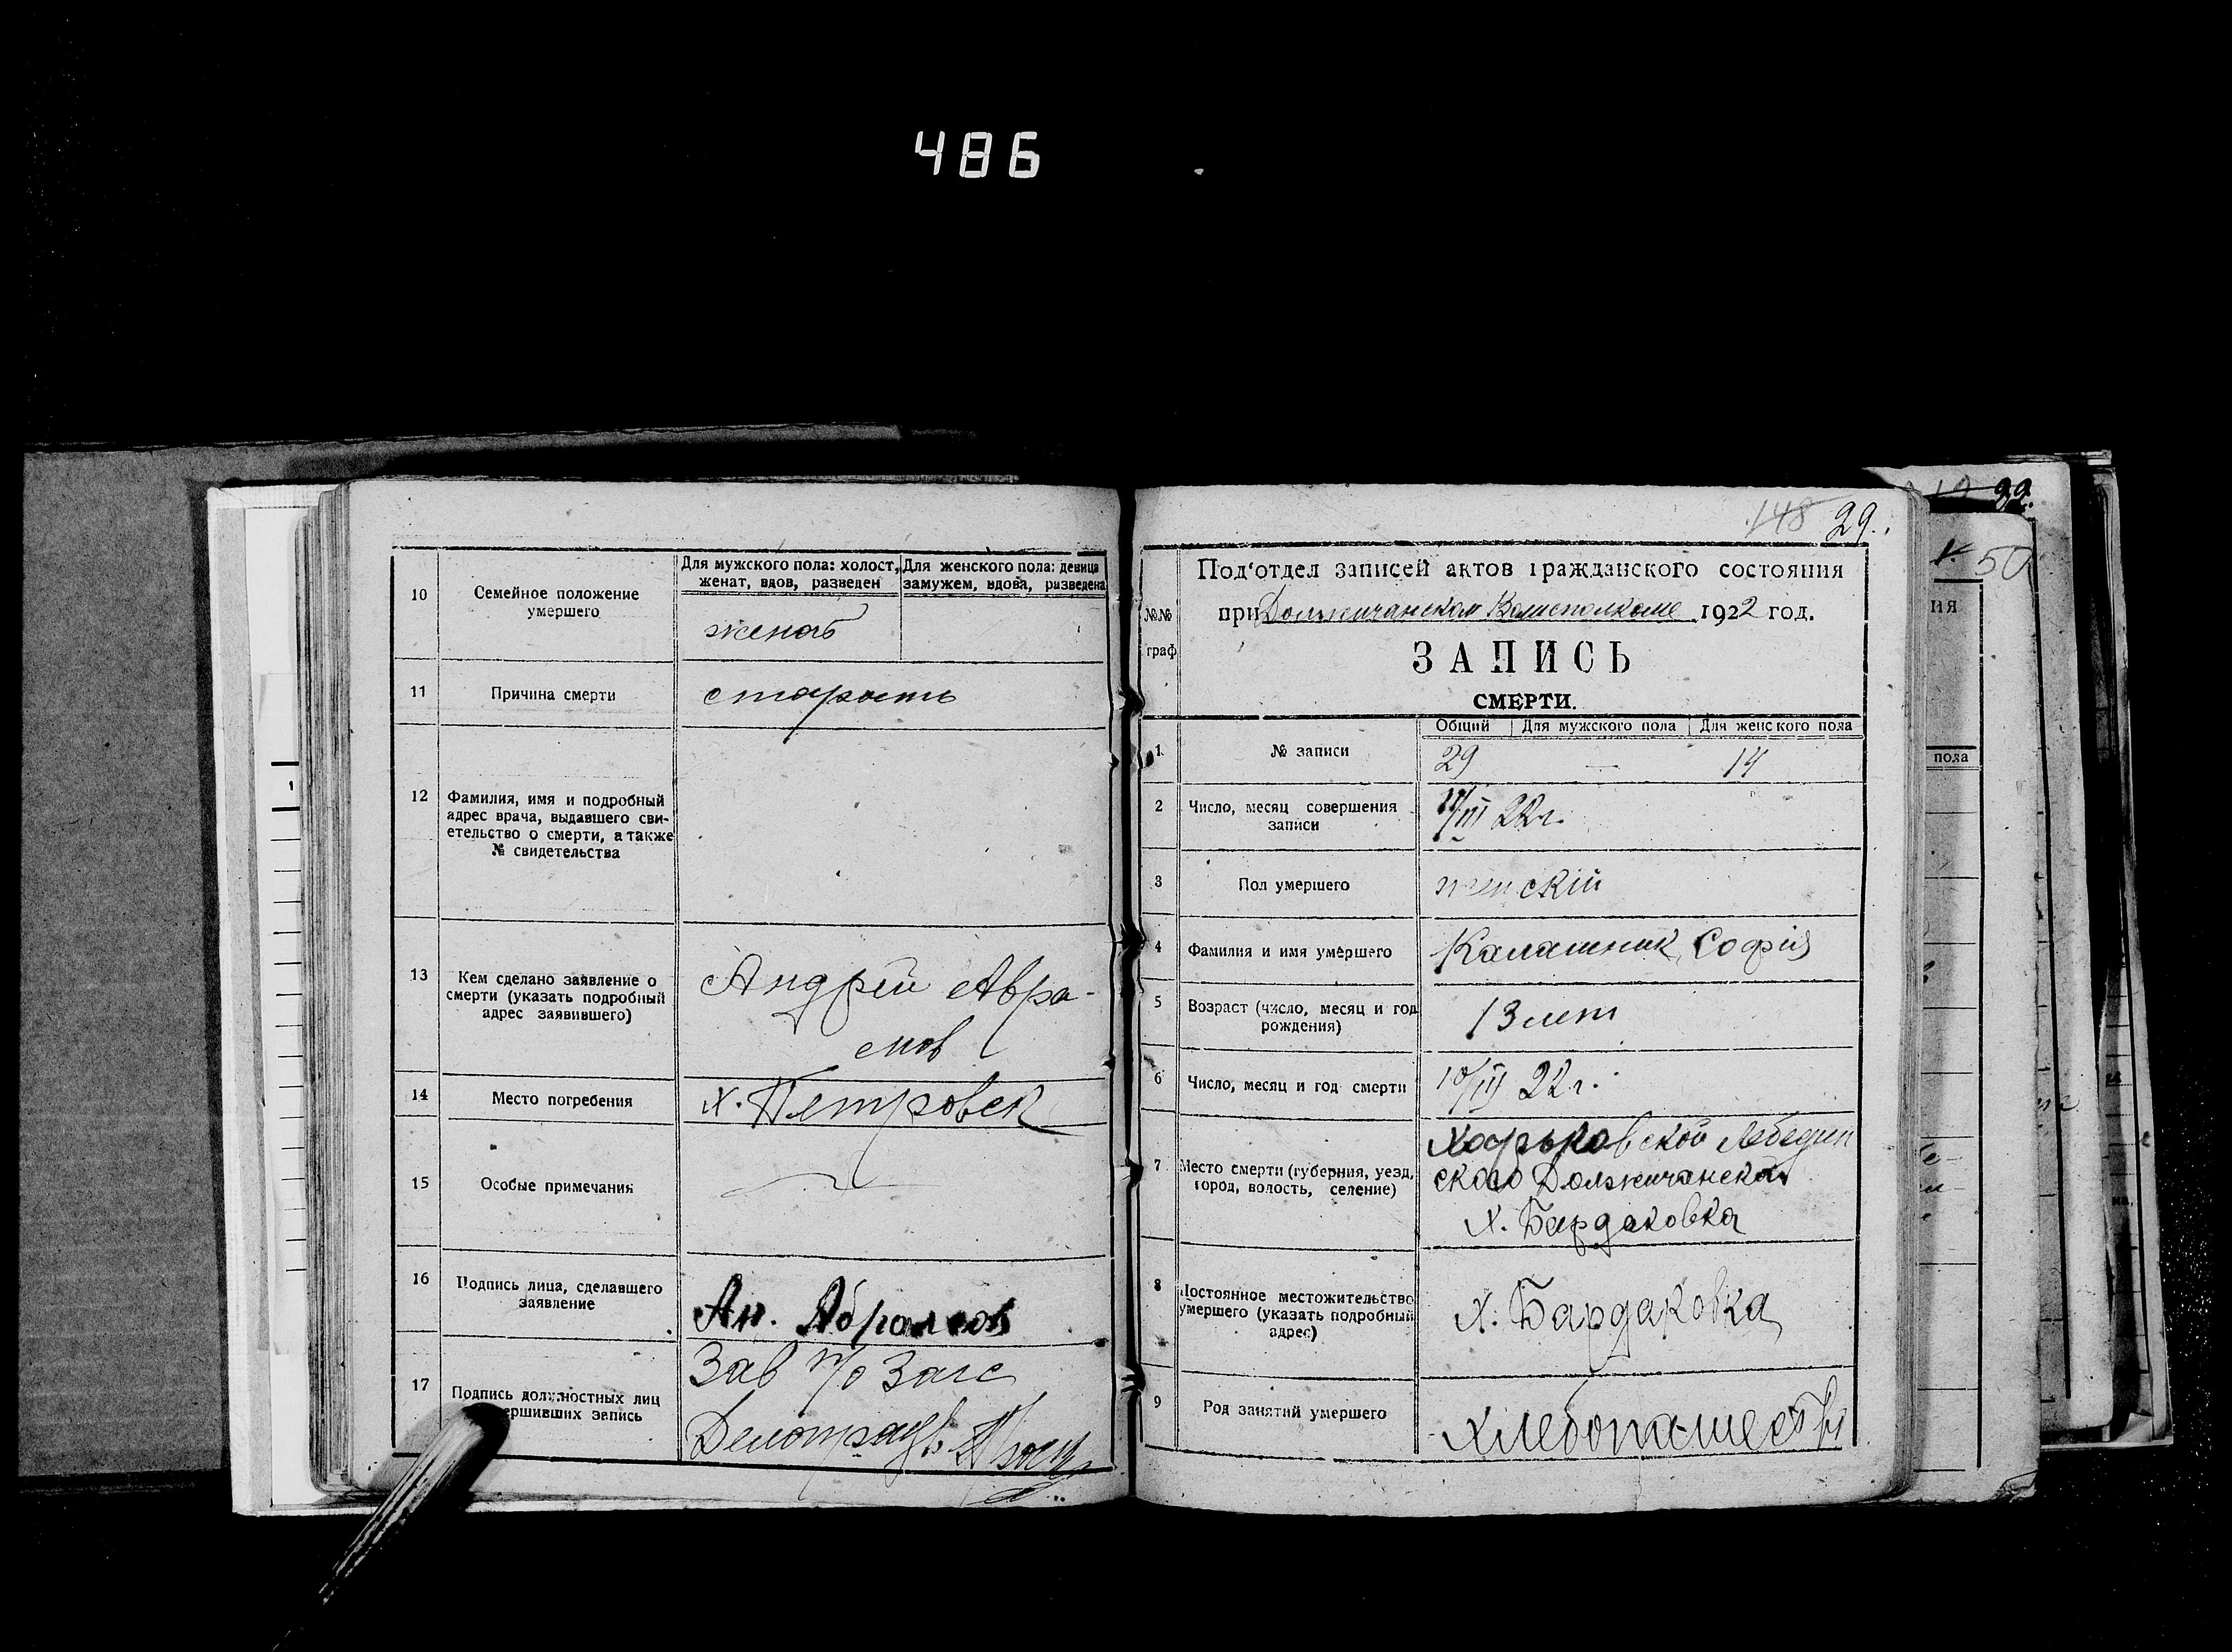 486
10
Семейное положение
умершего
Для мужского пола: холост,
женат, вдов, разведен
Для женского пола: девица
замужем, вдова, разведена
женат
11
Причина смерти
старость
12
Фамилия, имя и подробный
адрес врача, выдавшего сви-
етельство о смерти, а также
№ свидетельства
13
Кем сделано заявление о
смерти (указать подробный
адрес заявившего)
Андрей Авра-
мов
14
Место погребения
х. Петровск
15
Особые примечания
16
Подпись лица, сделавшего
заявление
Ан. Абрамов
17
Подпись должностных лиц
ершивших запись
Зав п/о Загс
148 29.
Под'отдел записей актов гражданского состояния
при Должичанском Волисполкоме 1922 год.
№№
граф
ЗАПИСЬ
СМЕРТИ.
Общий
Для мужского пола
Для женского пола
1
№ записи
29 — 14
2
Число, месяц совершения
записи
11/III 22 г.
3
Пол умершего
женскій
4
Фамилия и имя умершего
Калашник Софія
5
Возраст (число, месяц и год
рождения)
13 лет
6
Число, месяц и год смерти
10/III 22 г.
7
Место смерти (губерния, уезд,
город, волость, селение)
Харьковской Лебедин
ского Должичанской
х. Бардаковка
8
Постоянное местожительство
умершего (указать подробный
адрес)
х. Бардаковка
9
Род занятий умершего
хлебопашество
50
ия
пола